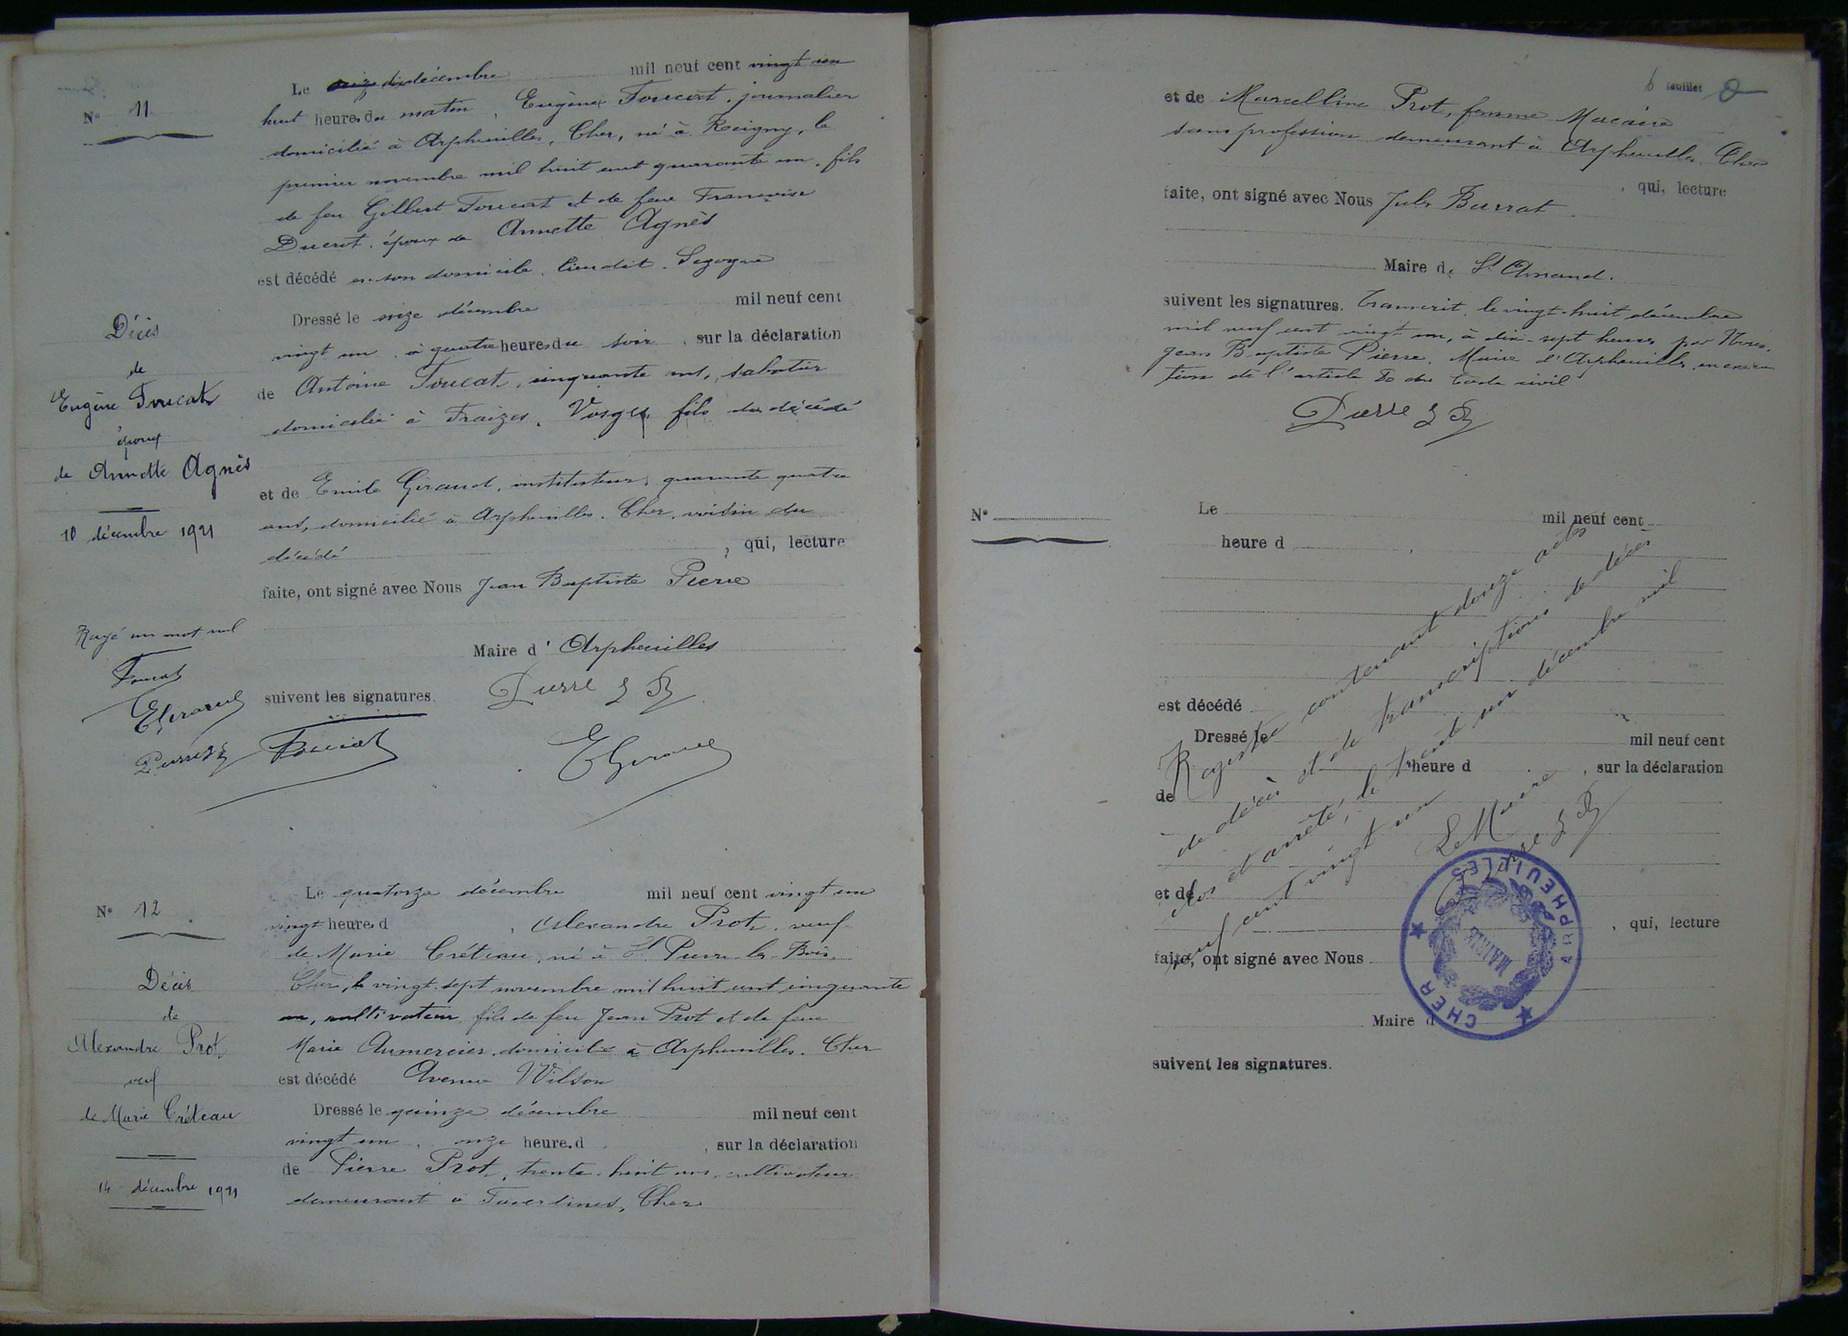 N° 11
Le onze dix décembre mil neuf cent vingt un
huit heures du matin, Eugène Foucat, journalier
domicilié à Arpheuilles, Cher, né à Reigny, le
premier novembre mil huit cent quarante un, fils
de feu Gilbert Foucat et de feue Françoise
Ducrot, époux de Annette Agnès
est décédé en son domicile, lieu dit
Dressé le onze décembre mil neuf cent
vingt un, à quatre heures du soir, sur la déclaration
de Antoine Foucat, cinquante ans, sabotier
domicilié à Fraizes, Vosges, fils du décédé
et de Emile Giraud, instituteur, quarante quatre
ans, domicilié à Arpheuilles, Cher, voisin du
décédé, qui, lecture
faite, ont signé avec Nous Jean Baptiste Pierre
Maire d'Arpheuilles
suivent les signatures.
Pierre J B
Foucat
EGiraud
Décès
de
Eugène Foucat
époux
de Annette Agnès
10 décembre 1921
Rayé un mot nul
Foucat
EGiraud
Pierre JB
N° 12
Le quatorze décembre mil neuf cent vingt un
vingt heures d, Alexandre Prot, veuf
de Marie Créteau, né à St Pierre les Bois
Cher, le vingt sept novembre mil huit cent cinquante
un, cultivateur, fils de feu Jean Prot et de feue
Marie Aumercier, domicilié à Arpheuilles, Cher
est décédé Avenue Wilson
Dressé le quinze décembre mil neuf cent
vingt un, onze heures d, sur la déclaration
de Pierre Prot, trente huit ans, cultivateur
demeurant à Faverdines, Cher
Décès
de
Alexandre Prot
veuf
de Marie Créteau
14 décembre 1921
6 feuillet
et de Marcelline Prot, femme Macaire
sans profession demeurant à Arpheuilles Cher
, qui, lecture
faite, ont signé avec Nous Jules Burrat
Maire de St Amand.
suivent les signatures. Transcrit, le vingt-huit décembre
mil neuf cent vingt un, à dix-sept heures, par Nous,
Jean Baptiste Pierre, Maire d'Arpheuilles, en exécu
tion de l'article 80 du Code civil
Pierre J B
N°
Le mil neuf cent
heure d
est décédé
Dressé le mil neuf cent
heure d, sur la déclaration
de
et de
, qui, lecture
faite, ont signé avec Nous
Maire d
suivent les signatures.
Registre contenant douze actes
de décès et de transcriptions de décès
clos et arrêté, le trente un décembre mil
neuf cent vingt un
Le Maire
Pierre J B
ARPHEUILLES
MAIRIE
CHER